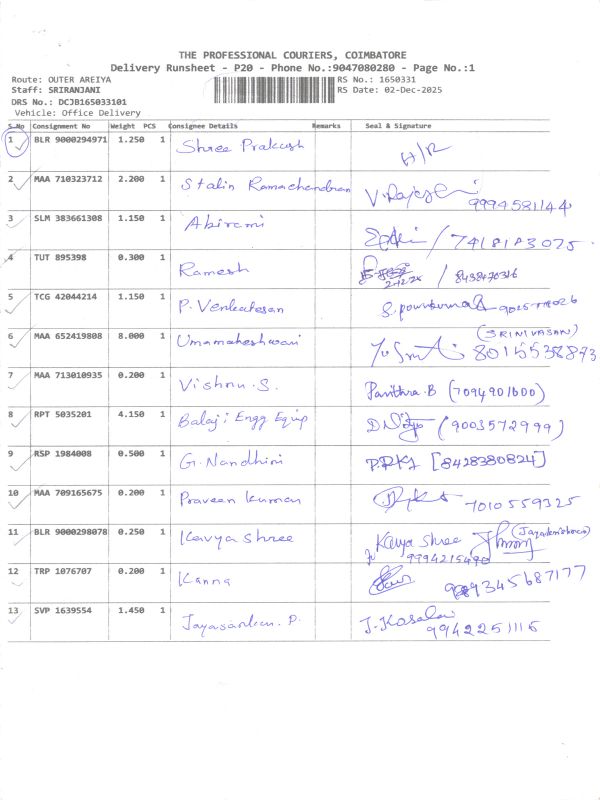 THE PROFESSIONAL COURIERS, COIMBATORE
Delivery Runsheet - P20 - Phone No.:9047080280 - Page No.:1
Route: OUTER AREIYA RS No.: 1650331
Staff: SRIRANJANI RS Date: 02-Dec-2025
DRS No.: DCJB165033101
Vehicle: Office Delivery
S.No Consignment No Weight PCS Consignee Details Remarks Seal & Signature
1 BLR 9000294971 1.250 1 Shree Prakash H/R
2 MAA 710323712 2.200 1 Stalin Ramachandran 9994581144
3 SLM 383661308 1.150 1 Abirami / 7418183075
4 TUT 895398 0.300 1 Ramesh
5 TCG 42044214 1.150 1 P. Venkatesan
6 MAA 652419808 8.000 1 Umamaheshwari (SRINIVASAN) 8015538873
7 MAA 713010935 0.200 1 Vishnu.S. Pavithra.B (7094901600)
8 RPT 5035201 4.150 1 Balaji Engg Equip (9003572999)
9 RSP 1984008 0.500 1 G. Nandhini [8428380824]
10 MAA 709165675 0.200 1 Praveen kumar 7010559325
11 BLR 9000298078 0.250 1 Kavya Shree Kavya Shree
12 TRP 1076707 0.200 1 Kanna 9345687177
13 SVP 1639554 1.450 1 Jayasankar. P. J. Kosalai
99422 51116